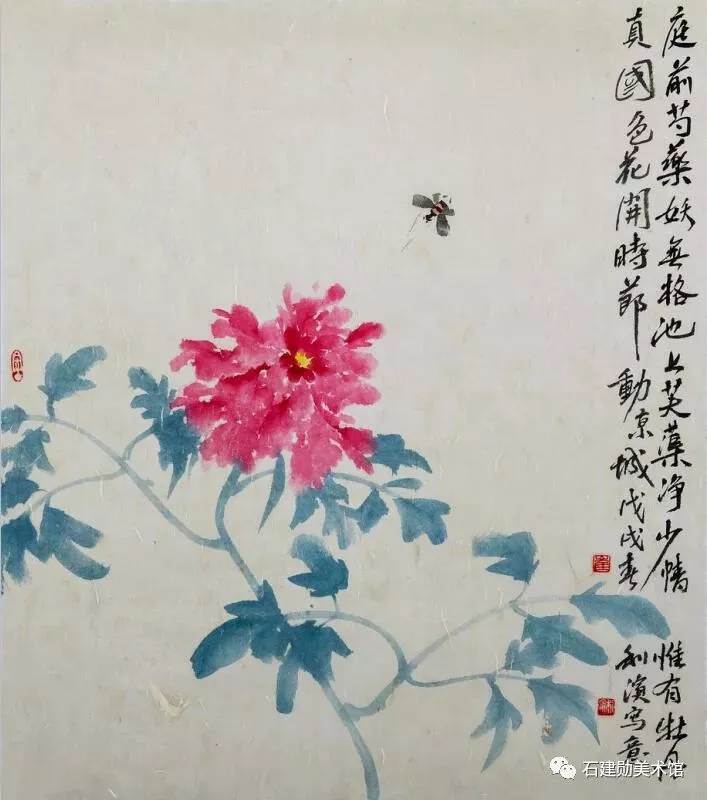 庭前芍藥妖無格池上芙蕖净少情惟有牡丹
真國色花開時節動京城戊戌春利濱寫意
石建勋美术馆